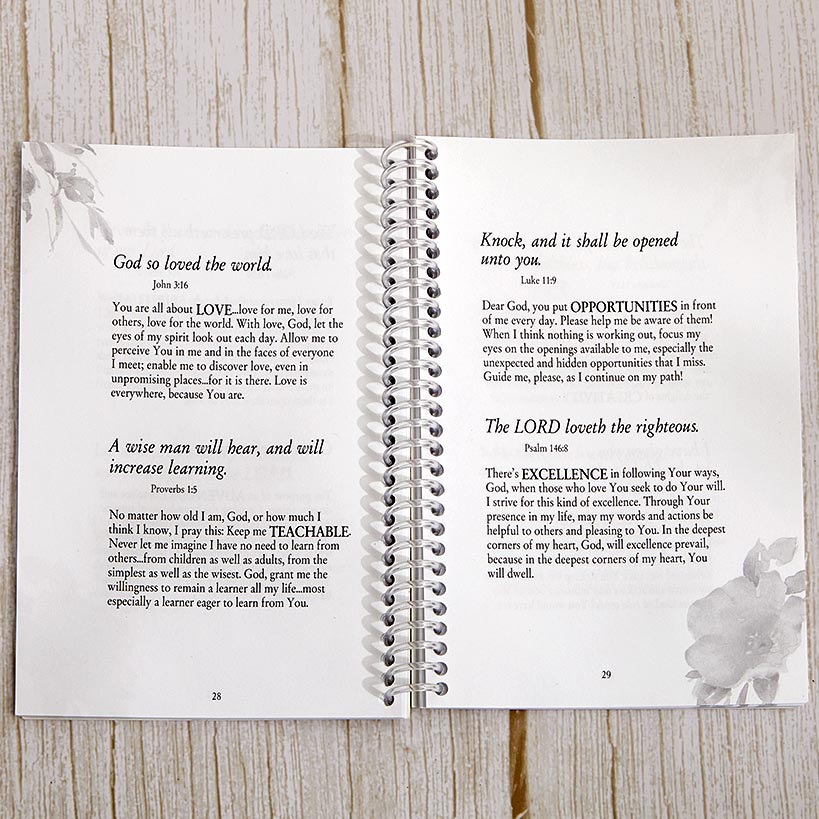 God so loved the world.
John 3:16
You are all about LOVE...love for me, love for
others, love for the world. With love, God, let the
eyes of my spirit look out each day. Allow me to
perceive You in me and in the faces of everyone
I meet; enable me to discover love, even in
unpromising places...for it is there. Love is
everywhere, because You are.
A wise man will hear, and will
increase learning.
Proverbs 1:5
No matter how old I am, God, or how much I
think I know, I pray this: Keep me TEACHABLE.
Never let me imagine I have no need to learn from
others...from children as well as adults, from the
simplest as well as the wisest. God, grant me the
willingness to remain a learner all my life...most
especially a learner eager to learn from You.
28
Knock, and it shall be opened
unto you.
Luke 11:9
Dear God, you put OPPORTUNITIES in front
of me every day. Please help me be aware of them!
When I think nothing is working out, focus my
eyes on the openings available to me, especially the
unexpected and hidden opportunities that I miss.
Guide me, please, as I continue on my path!
The LORD loveth the righteous.
Psalm 146:8
There's EXCELLENCE in following Your ways,
God, when those who love You seek to do Your will.
I strive for this kind of excellence. Through Your
presence in my life, may my words and actions be
helpful to others and pleasing to You. In the deepest
corners of my heart, God, will excellence prevail,
because in the deepest corners of my heart, You
will dwell.
29